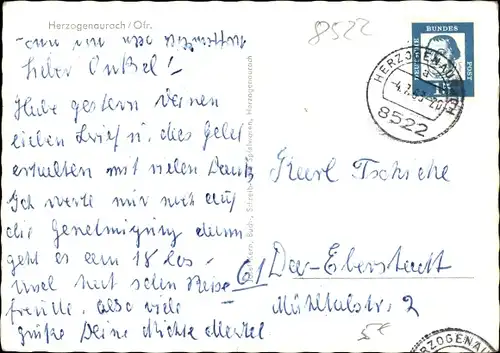 Herzogenaurach/Ofr.
8522
Lieber Onkel!
Habe gestern Deinen
lieben Brief u. das Geld
erhalten mit vielen Dank
Ich warte nur noch auf
die Genehmigung dann
geht es am 18 los
Insel hat schon Reise
freude. Also viele
Grüße Deine Nichte
DEUTSCHE BUNDESPOST
15
HERZOGENAURACH
a
8522
Karl
61 Da-Eberstadt
Mühltalstr. 2
5€
HERZOGENAU